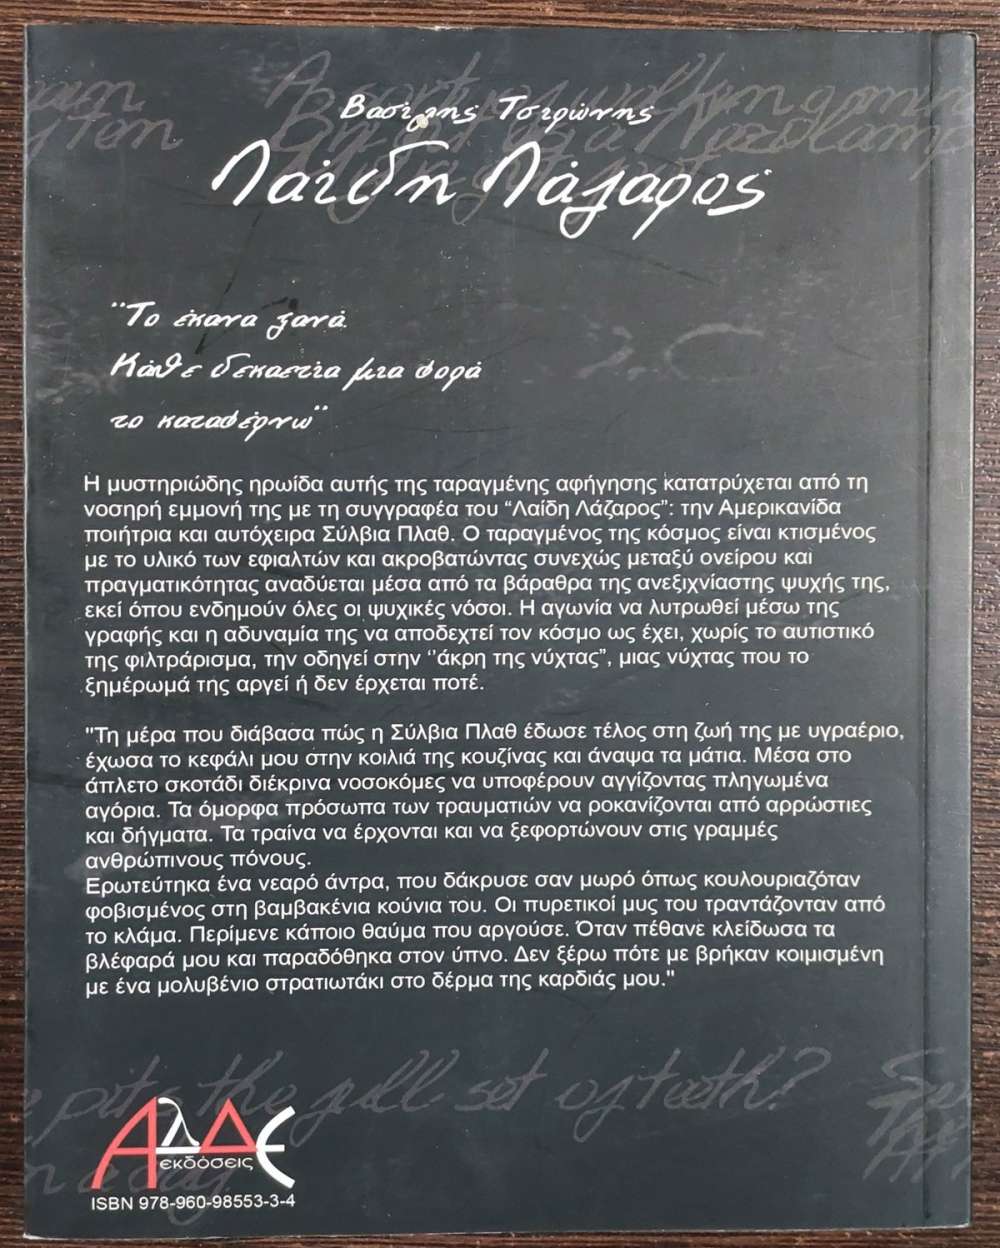 Βασίλης Τσιρώνης
Λαίδη Λάζαρος
"Το έκανα ξανά.
Κάθε δεκαετία μια φορά
το καταφέρνω"
Η μυστηριώδης ηρωίδα αυτής της ταραγμένης αφήγησης κατατρύχεται από τη
νοσηρή εμμονή της με τη συγγραφέα του “Λαίδη Λάζαρος”: την Αμερικανίδα
ποιήτρια και αυτόχειρα Σύλβια Πλαθ. Ο ταραγμένος της κόσμος είναι κτισμένος
με το υλικό των εφιαλτών και ακροβατώντας συνεχώς μεταξύ ονείρου και
πραγματικότητας αναδύεται μέσα από τα βάραθρα της ανεξιχνίαστης ψυχής της,
εκεί όπου ενδημούν όλες οι ψυχικές νόσοι. Η αγωνία να λυτρωθεί μέσω της
γραφής και η αδυναμία της να αποδεχτεί τον κόσμο ως έχει, χωρίς το αυτιστικό
της φιλτράρισμα, την οδηγεί στην ‘’άκρη της νύχτας”, μιας νύχτας που το
ξημέρωμά της αργεί ή δεν έρχεται ποτέ.
"Τη μέρα που διάβασα πώς η Σύλβια Πλαθ έδωσε τέλος στη ζωή της με υγραέριο,
έχωσα το κεφάλι μου στην κοιλιά της κουζίνας και άναψα τα μάτια. Μέσα στο
άπλετο σκοτάδι διέκρινα νοσοκόμες να υποφέρουν αγγίζοντας πληγωμένα
αγόρια. Τα όμορφα πρόσωπα των τραυματιών να ροκανίζονται από αρρώστιες
και δήγματα. Τα τραίνα να έρχονται και να ξεφορτώνουν στις γραμμές
ανθρώπινους πόνους.
Ερωτεύτηκα ένα νεαρό άντρα, που δάκρυσε σαν μωρό όπως κουλουριαζόταν
φοβισμένος στη βαμβακένια κούνια του. Οι πυρετικοί μυς του τραντάζονταν από
το κλάμα. Περίμενε κάποιο θαύμα που αργούσε. Όταν πέθανε κλείδωσα τα
βλέφαρά μου και παραδόθηκα στον ύπνο. Δεν ξέρω πότε με βρήκαν κοιμισμένη
με ένα μολυβένιο στρατιωτάκι στο δέρμα της καρδιάς μου."
pits the full set of teeth?
ΑλΔΕ
εκδόσεις
ISBN 978-960-98553-3-4